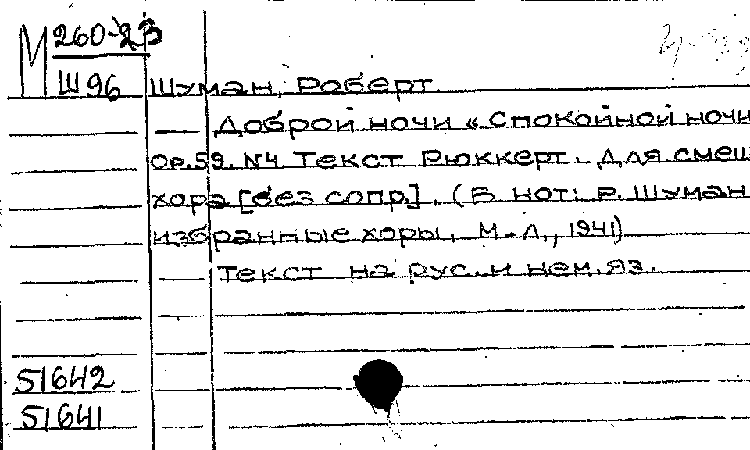 М 260-23
Ш96 Шуман, Роберт.
— Доброй ночи « Спокойной ночи
Op.59. №4 Текст Рюккерт. Для смеш
хора [без сопр.]. (В нот: Р. Шуман
избранные хоры, М.-Л., 1941)
Текст на рус. и нем. яз.
51642
51641